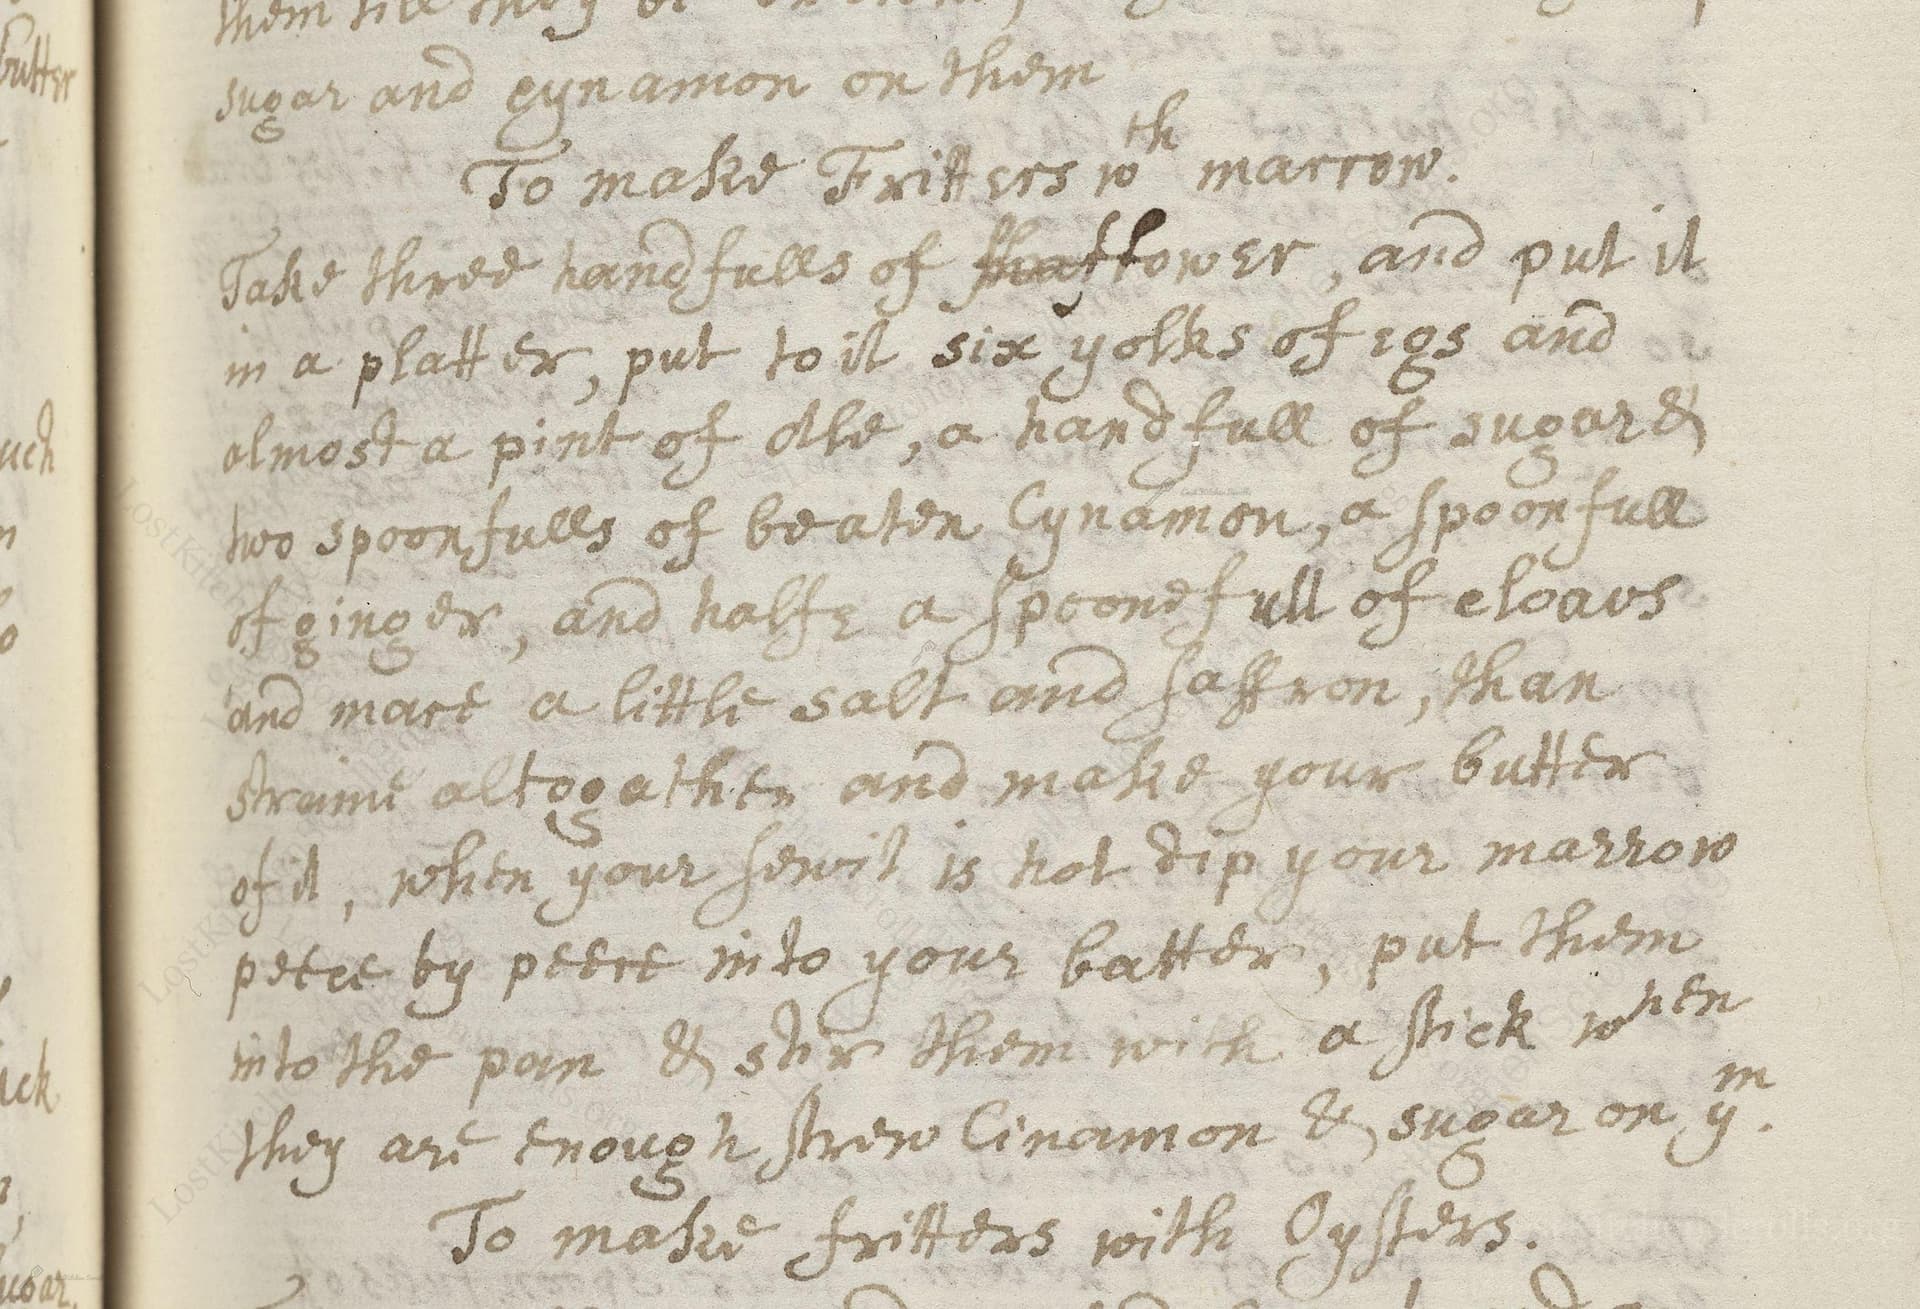 them till they be
sugar and cynamon on them
To make Fritters wth marrow.
Take three handfulls of flower, and put it
in a platter, put to it six yolks of egs and
almost a pint of Ale, a handfull of sugar &
two spoonfulls of beaten Cynamon, a spoonfull
of ginger, and halfe a spoonefull of cloavs
and mace a little salt and saffron, than
straine altogather and make your butter
of it, when your sewit is hot dip your marrow
peece by peece into your batter, put them
into the pan & stir them with a stick when
they are enough strew Cinamon & sugar on ym.
To make fritters with Oysters.
butter
uch
ick